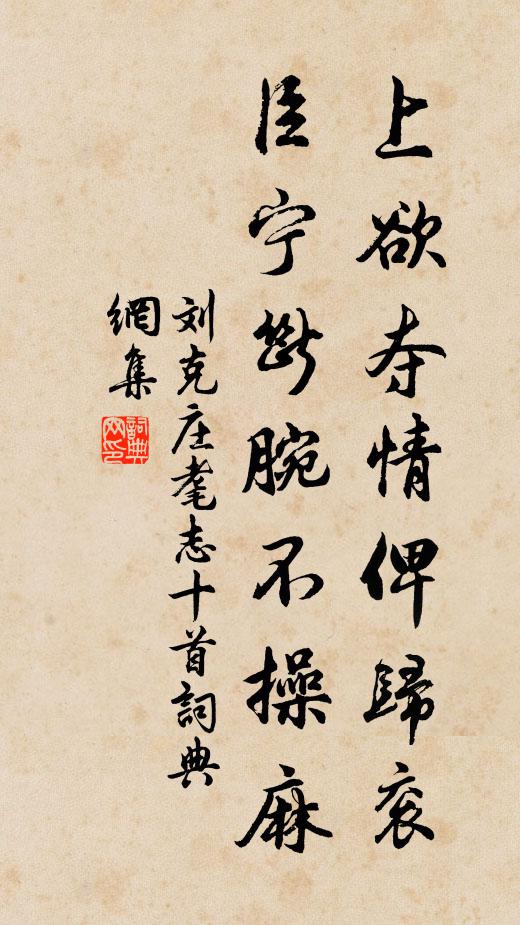 上欲夺情俾歸衮
臣宁断腕不操麻
刘克庄耄志十首詞典
網集
詞典
网印